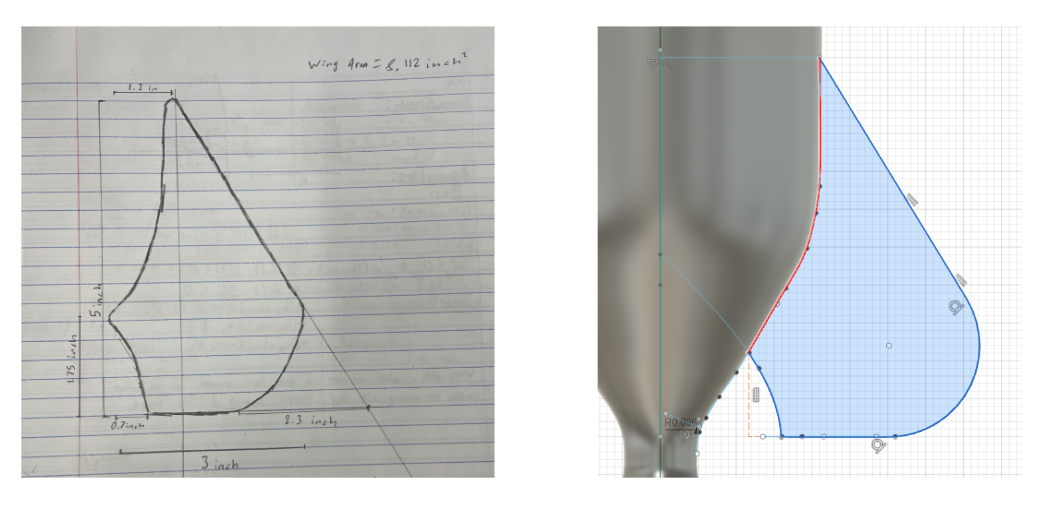 Wing Area = 8.112 inch²
1.2 in
5 inch
1.75 inch
0.7 inch
2.3 inch
3 inch